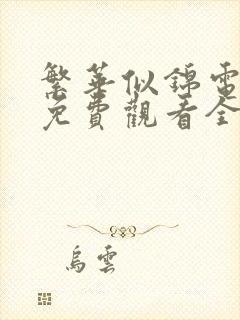 繁華似錦電
免費觀看全
烏雲